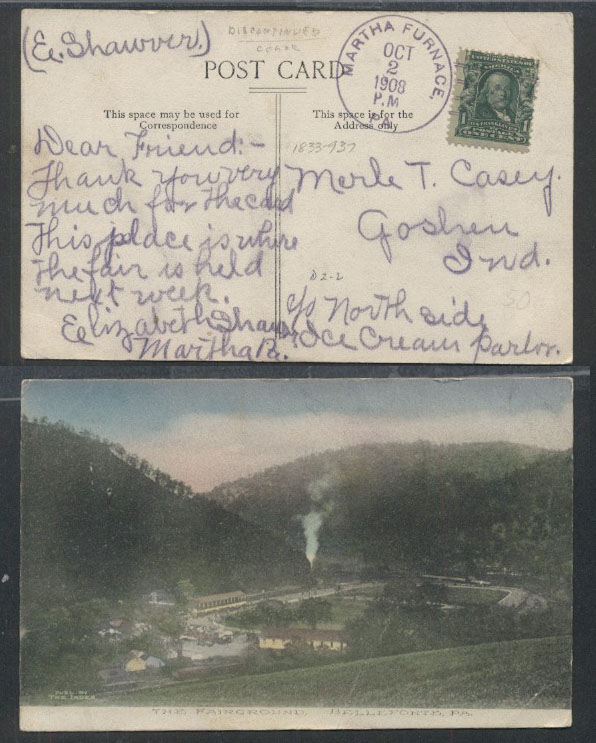 (E. Shawver.)
DISCONTINUED
POST CARD
MARTHA FURNACE,
OCT
2
1908
P.M
PA.
1
This space may be used for
Correspondence
This space is for the
Address only
1833-937
Dear Friend:-
Thank you very
much for the card
This place is where
the fair is held
next week.
Elizabeth Shawver
Martha
Merle T. Casey.
Goshen
Ind.
D2-2
30
c/o North side
Ice Cream Parlor.
PUBL. BY
THE INDEX
THE FAIRGROUND, BELLEFONTE, PA.